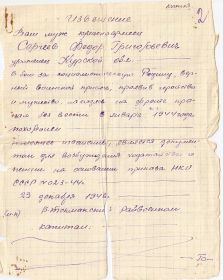 копия
2
Извещение
Ваш муж красноармеец
Сергеев Федор Григорьевич
уроженец Курской обл.
в бою за социалистическую Родину, вер-
ный воинской присяге, проявив геройство
и мужество, на фронте про-
пал без вести в январе 1944 года
похоронен
извещение, является докумен-
том для возбуждения ходатайства о
пенсии на основании приказа НКО
СССР № 023-44г.
23 декабря 1946г.
райвоенком
капитан: